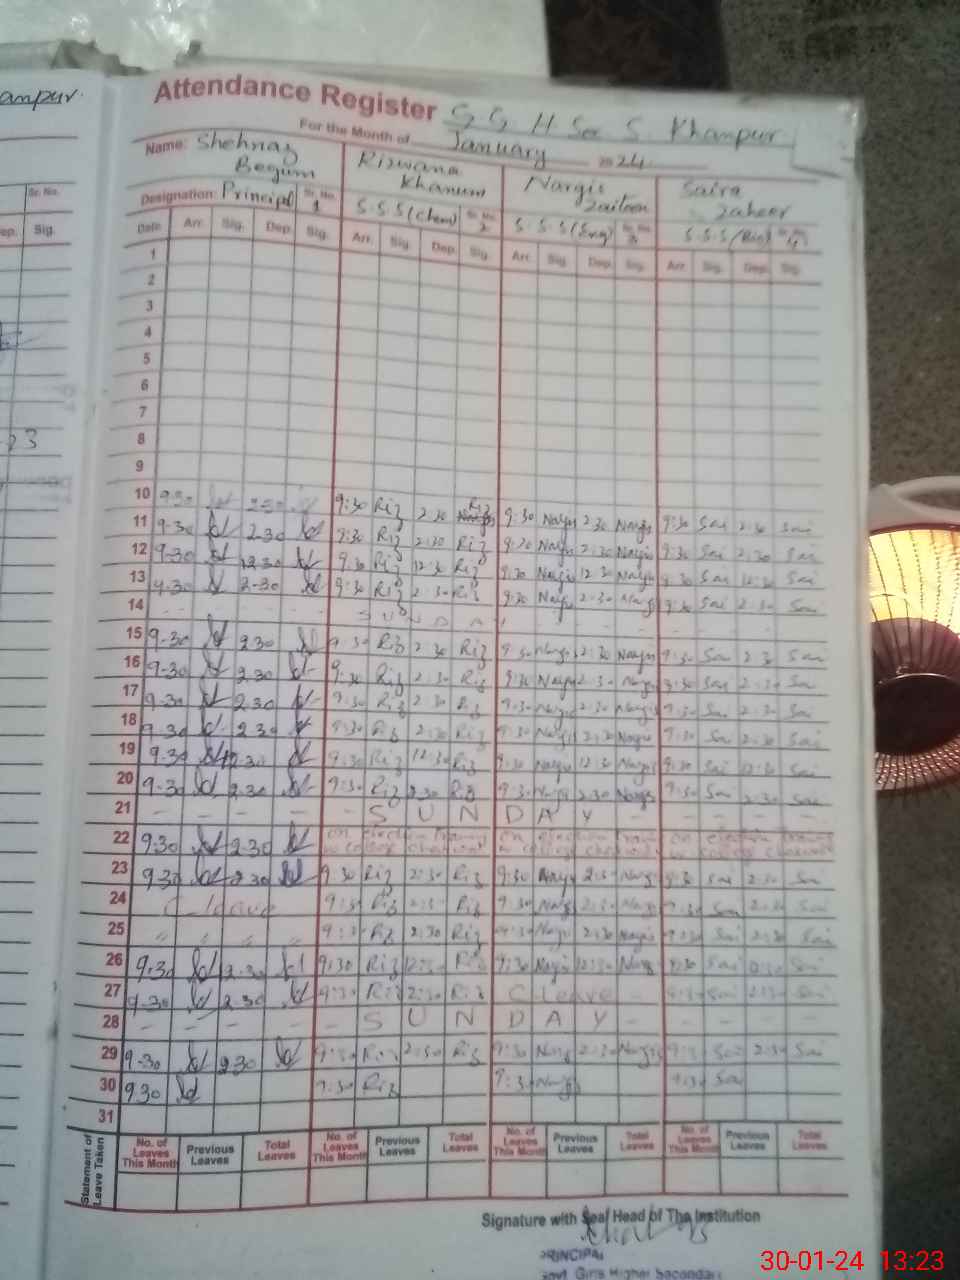 anpur.
Attendance Register G G H Sec S. Khanpur
For the Month of January 2024
Name: Shehnaz Begum Rizwana Khanum Nargis Zaitoon Saira Zaheer
Designation: Principal Sr. No. 1 S.S.S (Chem) Sr. No. 2 S.S.S (Eng) Sr. No. 3 S.S.S (Bio) Sr. No. 4
Sr. No.
ep. Sig.
Date Arr. Sig. Dep. Sig. Arr. Sig. Dep. Sig. Arr. Sig. Dep. Sig. Arr. Sig. Dep. Sig.
1
2
3
4
5
6
7
8
23
9
10 9.30 2.30 9:30 Riz 2.30 Riz 9:30 Nargis 2:30 Nargis 9:30 Sai 2:30 Sai
11 9.30 2.30 9:30 Riz 2:30 Riz 9:30 Nargis 2:30 Nargis 9:30 Sai 2:30 Sai
12 9.30 12.30 9:30 Riz 12:30 Riz 9:30 Nargis 12:30 Nargis 9:30 Sai 12:30 Sai
13 9.30 2-30 9:30 Riz 2:30 Riz 9:30 Nargis 2:30 Nargis 9:30 Sai 2:30 Sai
14 - - - - S U N D A Y - - - -
15 9-30 2.30 9:30 Riz 2:30 Riz 9:30 Nargis 2:30 Nargis 9:30 Sai 2:30 Sai
16 9-30 2.30 9:30 Riz 2:30 Riz 9:30 Nargis 2:30 Nargis 9:30 Sai 2:30 Sai
17 9-30 2.30 9:30 Riz 2:30 Riz 9:30 Nargis 2:30 Nargis 9:30 Sai 2:30 Sai
18 9.30 2.30 9:30 Riz 2:30 Riz 9:30 Nargis 2:30 Nargis 9:30 Sai 2:30 Sai
19 9.30 12.30 9:30 Riz 12:30 Riz 9:30 Nargis 12:30 Nargis 9:30 Sai 12:30 Sai
20 9-30 2.30 9:30 Riz 2:30 Riz 9:30 Nargis 2:30 Nargis 9:30 Sai 2:30 Sai
21 - - - - - S U N D A Y - - - - -
22 9.30 2.30 on election training in college on election training in college on election training in college
23 9.30 2.30 9:30 Riz 2:30 Riz 9:30 Nargis 2:30 Nargis 9:30 Sai 2:30 Sai
24 C leave 9:30 Riz 2:30 Riz 9:30 Nargis 2:30 Nargis 9:30 Sai 2:30 Sai
25 " " " " 9:30 Riz 2:30 Riz 9:30 Nargis 2:30 Nargis 9:30 Sai 2:30 Sai
26 9.30 2.30 9:30 Riz 12:30 Riz 9:30 Nargis 12:30 Nargis 9:30 Sai 12:30 Sai
27 9.30 2.30 9:30 Riz 2:30 Riz C leave 9:30 Sai 2:30 Sai
28 - - - - - S U N D A Y - - - - -
29 9-30 2.30 9:30 Riz 2:30 Riz 9:30 Nargis 2:30 Nargis 9:30 Sai 2:30 Sai
30 9.30 9:30 Riz 9:30 Nargis 9:30 Sai
31
Statement of Leave Taken No. of Leaves This Month Previous Leaves Total Leaves No. of Leaves This Month Previous Leaves Total Leaves No. of Leaves This Month Previous Leaves Total Leaves No. of Leaves This Month Previous Leaves Total Leaves
Signature with Seal Head of The Institution
PRINCIPAL
Govt. Girls Higher Secondary
30-01-24 13:23